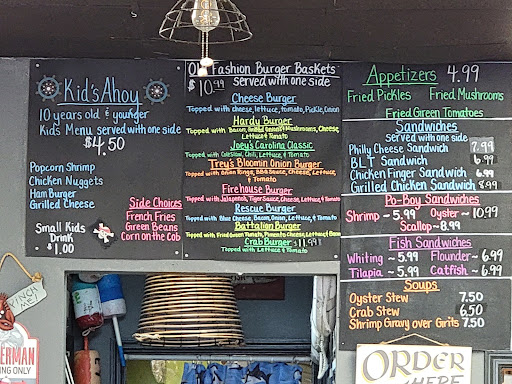 Kid's Ahoy
10 years old & younger
Kids Menu served with one side
$4.50
Popcorn Shrimp
Chicken Nuggets
Ham Burger
Grilled Cheese
Side Choices
French Fries
Green Beans
Corn on the Cob
Small Kids
Drink
$1.00
Old Fashion Burger Baskets
$10.99 served with one side
Cheese Burger
Topped with cheese, lettuce, tomato, Pickle, Onion
Hardy Burger
Topped with Bacon, Grilled Onions & Mushrooms, Cheese,
Lettuce & Tomato
Joey's Carolina Classic
Topped with Coleslaw, Chili, Lettuce, & Tomato
Trey's Bloomin Onion Burger
Topped with Onion Rings, BBQ Sauce, Cheese, Lettuce,
& Tomato
Firehouse Burger
Topped with Jalapeños, Tiger Sauce, Cheese, Lettuce & Tomato
Rescue Burger
Topped with Blue Cheese, Bacon, Onion, Lettuce, & Tomato
Battalion Burger
Topped with Fried Green Tomato, Pimento Cheese, Lettuce & Bacon
Crab Burger $11.99
Topped with Lettuce & Tomato
Appetizers 4.99
Fried Pickles Fried Mushrooms
Fried Green Tomatoes
Sandwiches
Served with one side
Philly Cheese Sandwich 7.99
BLT Sandwich 6.99
Chicken Finger Sandwich 6.99
Girilled Chicken Sandwich 8.99
Po-Boy Sandwiches
Shrimp - 5.99 Oyster - 10.99
Scallop - 8.99
Fish Sandwiches
Whiting - 5.99 Flounder - 6.99
Tilapia - 5.99 Catfish - 6.99
Soups
Oyster Stew 7.50
Crab Stew 6.50
Shrimp Gravy over Grits 7.50
PINCH
ME!
ERMAN
ING ONLY
ORDER
HERE